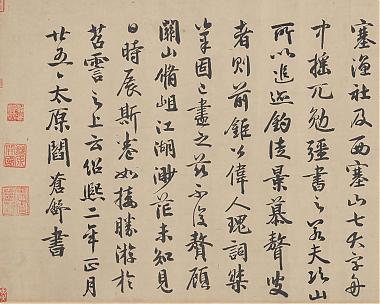 塞漁社及西塞山七大字舟
中搖兀勉彊書之若夫次山
所以追迹釣徒景慕聱叟
者則前鉅公偉人瑰詞傑
筆固已盡之茲不復贅顧
關山脩岨江湖渺茫未知見
日時展斯卷如接勝游於
苕霅之上云紹熙二年正月
廿五日太原閻蒼舒書